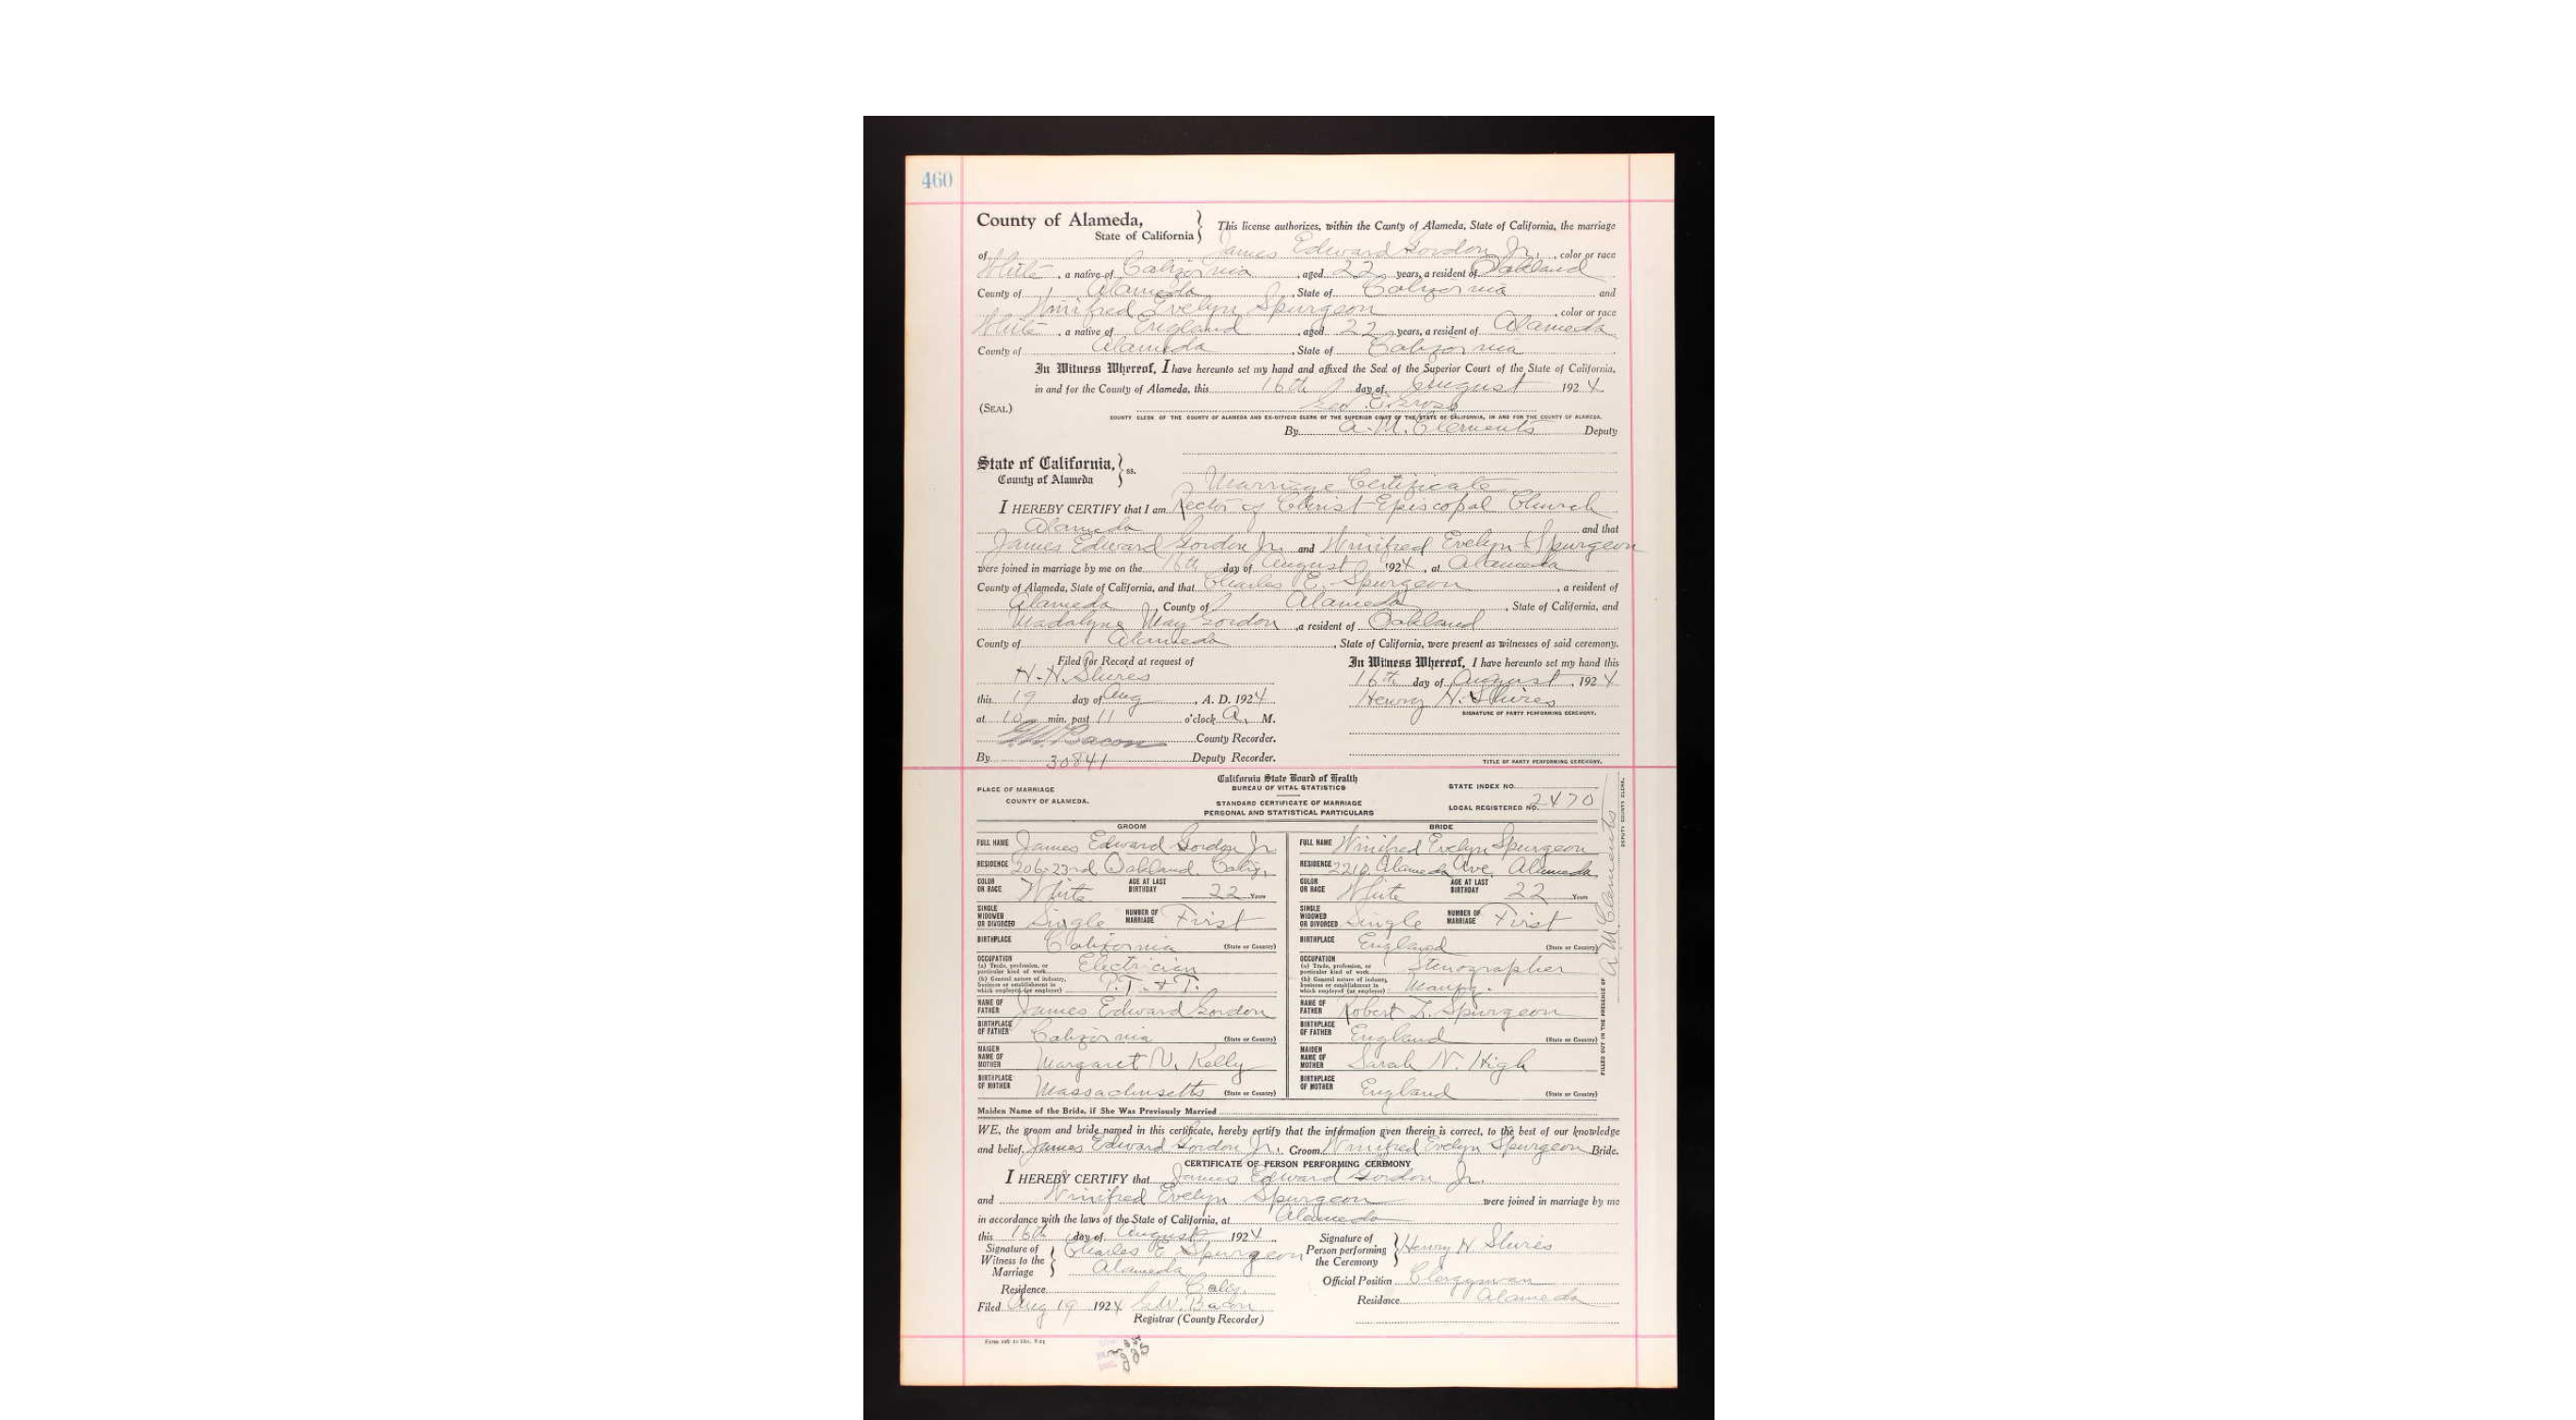 460
County of Alameda,
State of California
This license authorizes, within the County of Alameda, State of California, the marriage
of James Edward Gordon Jr., color or race
White, a native of California, aged 22 years, a resident of Oakland
County of Alameda, State of California and
Winifred Evelyn Spurgeon, color or race
White, a native of England, aged 22 years, a resident of Alameda
County of Alameda, State of California
In Witness Whereof, I have hereunto set my hand and affixed the Seal of the Superior Court of the State of California,
in and for the County of Alameda, this 16th day of August 1924
(SEAL) Geo. E. Gross
COUNTY CLERK OF THE COUNTY OF ALAMEDA AND EX-OFFICIO CLERK OF THE SUPERIOR COURT OF THE STATE OF CALIFORNIA, IN AND FOR THE COUNTY OF ALAMEDA.
By A. M. Clements Deputy
State of California,
County of Alameda
ss.
Marriage Certificate
I HEREBY CERTIFY that I am Rector of Christ Episcopal Church
Alameda and that
James Edward Gordon Jr. and Winifred Evelyn Spurgeon
were joined in marriage by me on the 16th day of August 1924, at Alameda
County of Alameda, State of California, and that Charles E. Spurgeon, a resident of
Alameda, County of Alameda, State of California, and
Madalyne May Gordon, a resident of Oakland
County of Alameda, State of California, were present as witnesses of said ceremony.
Filed for Record at request of
H. H. Shires
this 19 day of Aug, A. D. 1924
at 10 min. past 11 o'clock A. M.
G. W. Bacon County Recorder.
By 30841 Deputy Recorder.
In Witness Whereof, I have hereunto set my hand this
16th day of August, 1924
Henry H. Shires
SIGNATURE OF PARTY PERFORMING CEREMONY.
TITLE OF PARTY PERFORMING CEREMONY.
PLACE OF MARRIAGE
COUNTY OF ALAMEDA.
California State Board of Health
BUREAU OF VITAL STATISTICS
STANDARD CERTIFICATE OF MARRIAGE
PERSONAL AND STATISTICAL PARTICULARS
STATE INDEX NO.
LOCAL REGISTERED NO. 2470
GROOM
FULL NAME James Edward Gordon Jr.
RESIDENCE 206-23rd Oakland. Calif.
COLOR OR RACE White AGE AT LAST BIRTHDAY 22 Years
SINGLE WIDOWED OR DIVORCED Single NUMBER OF MARRIAGE First
BIRTHPLACE California (State or Country)
OCCUPATION
(a) Trade, profession, or particular kind of work Electrician
(b) General nature of industry, business or establishment in which employed (or employer) P. T. & T.
NAME OF FATHER James Edward Gordon
BIRTHPLACE OF FATHER California (State or Country)
MAIDEN NAME OF MOTHER Margaret V. Kelly
BIRTHPLACE OF MOTHER Massachusetts (State or Country)
BRIDE
FULL NAME Winifred Evelyn Spurgeon
RESIDENCE Alameda Ave. Alameda
COLOR OR RACE White AGE AT LAST BIRTHDAY 22 Years
SINGLE WIDOWED OR DIVORCED Single NUMBER OF MARRIAGE First
BIRTHPLACE England (State or Country)
OCCUPATION
(a) Trade, profession, or particular kind of work Stenographer
(b) General nature of industry, business or establishment in which employed (or employer)
NAME OF FATHER Robert Spurgeon
BIRTHPLACE OF FATHER England (State or Country)
MAIDEN NAME OF MOTHER Sarah N. High
BIRTHPLACE OF MOTHER England (State or Country)
FILLED OUT IN THE PRESENCE OF A. M. Clements DEPUTY COUNTY CLERK.
Maiden Name of the Bride, if She Was Previously Married
WE, the groom and bride named in this certificate, hereby certify that the information given therein is correct, to the best of our knowledge
and belief. James Edward Gordon Jr. Groom. Winifred Evelyn Spurgeon Bride.
CERTIFICATE OF PERSON PERFORMING CEREMONY
I HEREBY CERTIFY that James Edward Gordon Jr.
and Winifred Evelyn Spurgeon were joined in marriage by me
in accordance with the laws of the State of California, at Alameda
this 16th day of August, 1924.
Signature of Witness to the Marriage Charles E. Spurgeon
Alameda
Residence Calif.
Filed Aug 19 1924 G. W. Bacon
Registrar (County Recorder)
Signature of Person performing the Ceremony Henry H. Shires
Official Position Clergyman
Residence Alameda